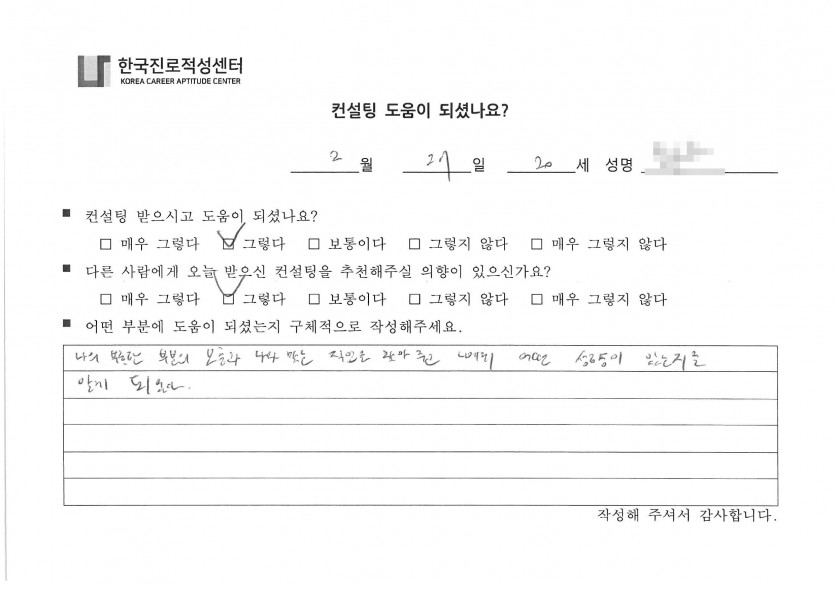 한국진로적성센터
KOREA CAREER APTITUDE CENTER
컨설팅 도움이 되셨나요?
2 월 27 일 20 세 성명
■ 컨설팅 받으시고 도움이 되셨나요?
□ 매우 그렇다 ☑ 그렇다 □ 보통이다 □ 그렇지 않다 □ 매우 그렇지 않다
■ 다른 사람에게 오늘 받으신 컨설팅을 추천해주실 의향이 있으신가요?
□ 매우 그렇다 ☑ 그렇다 □ 보통이다 □ 그렇지 않다 □ 매우 그렇지 않다
■ 어떤 부분에 도움이 되셨는지 구체적으로 작성해주세요.
나의 부족한 부분의 보충과 나와 맞는 직업을 찾아 주고 어떤 성향이 있는지를
알게 되었다.
작성해 주셔서 감사합니다.